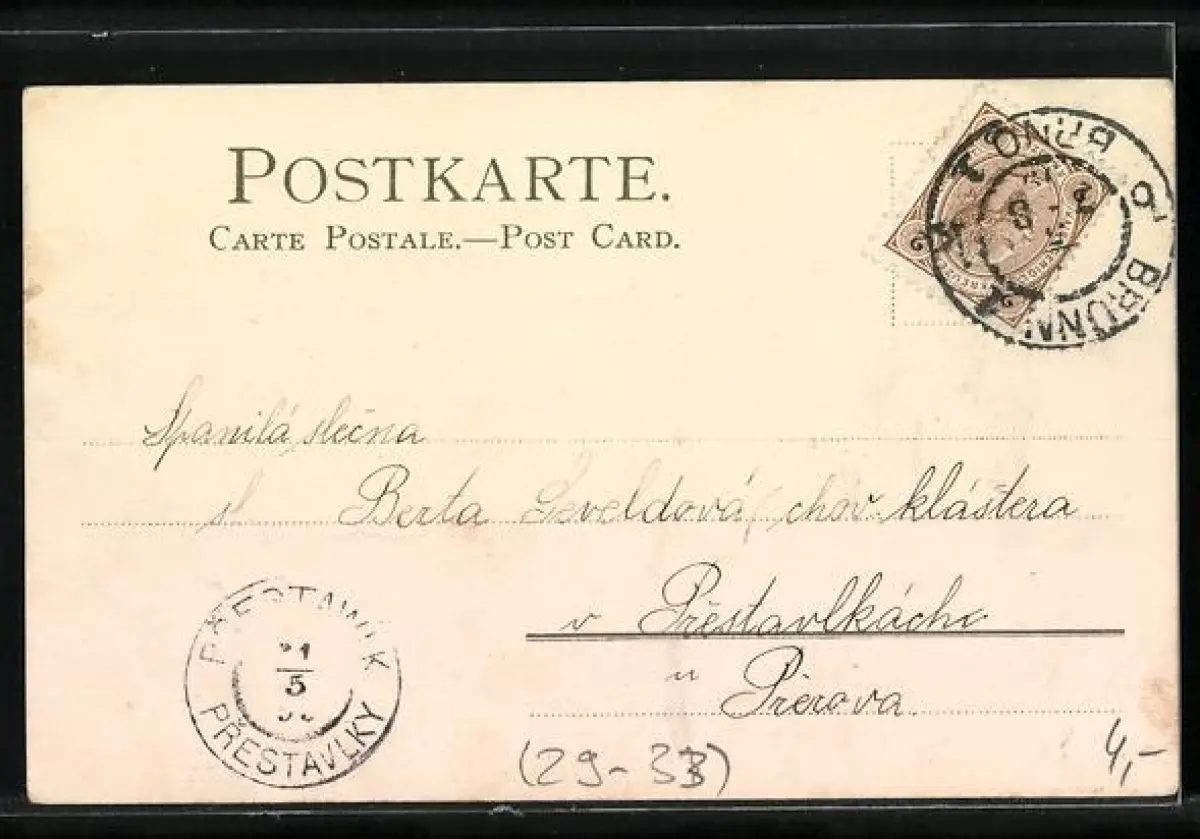 POSTKARTE.
CARTE POSTALE.—POST CARD.
BRNO
BRÜNN
Spanilá slečna
sl. Berta chov. kláštera
v Přestavlkách
u Přerova.
PŘESTAWLK
21
5
PŘESTAVLKY
(29-33)
4,-